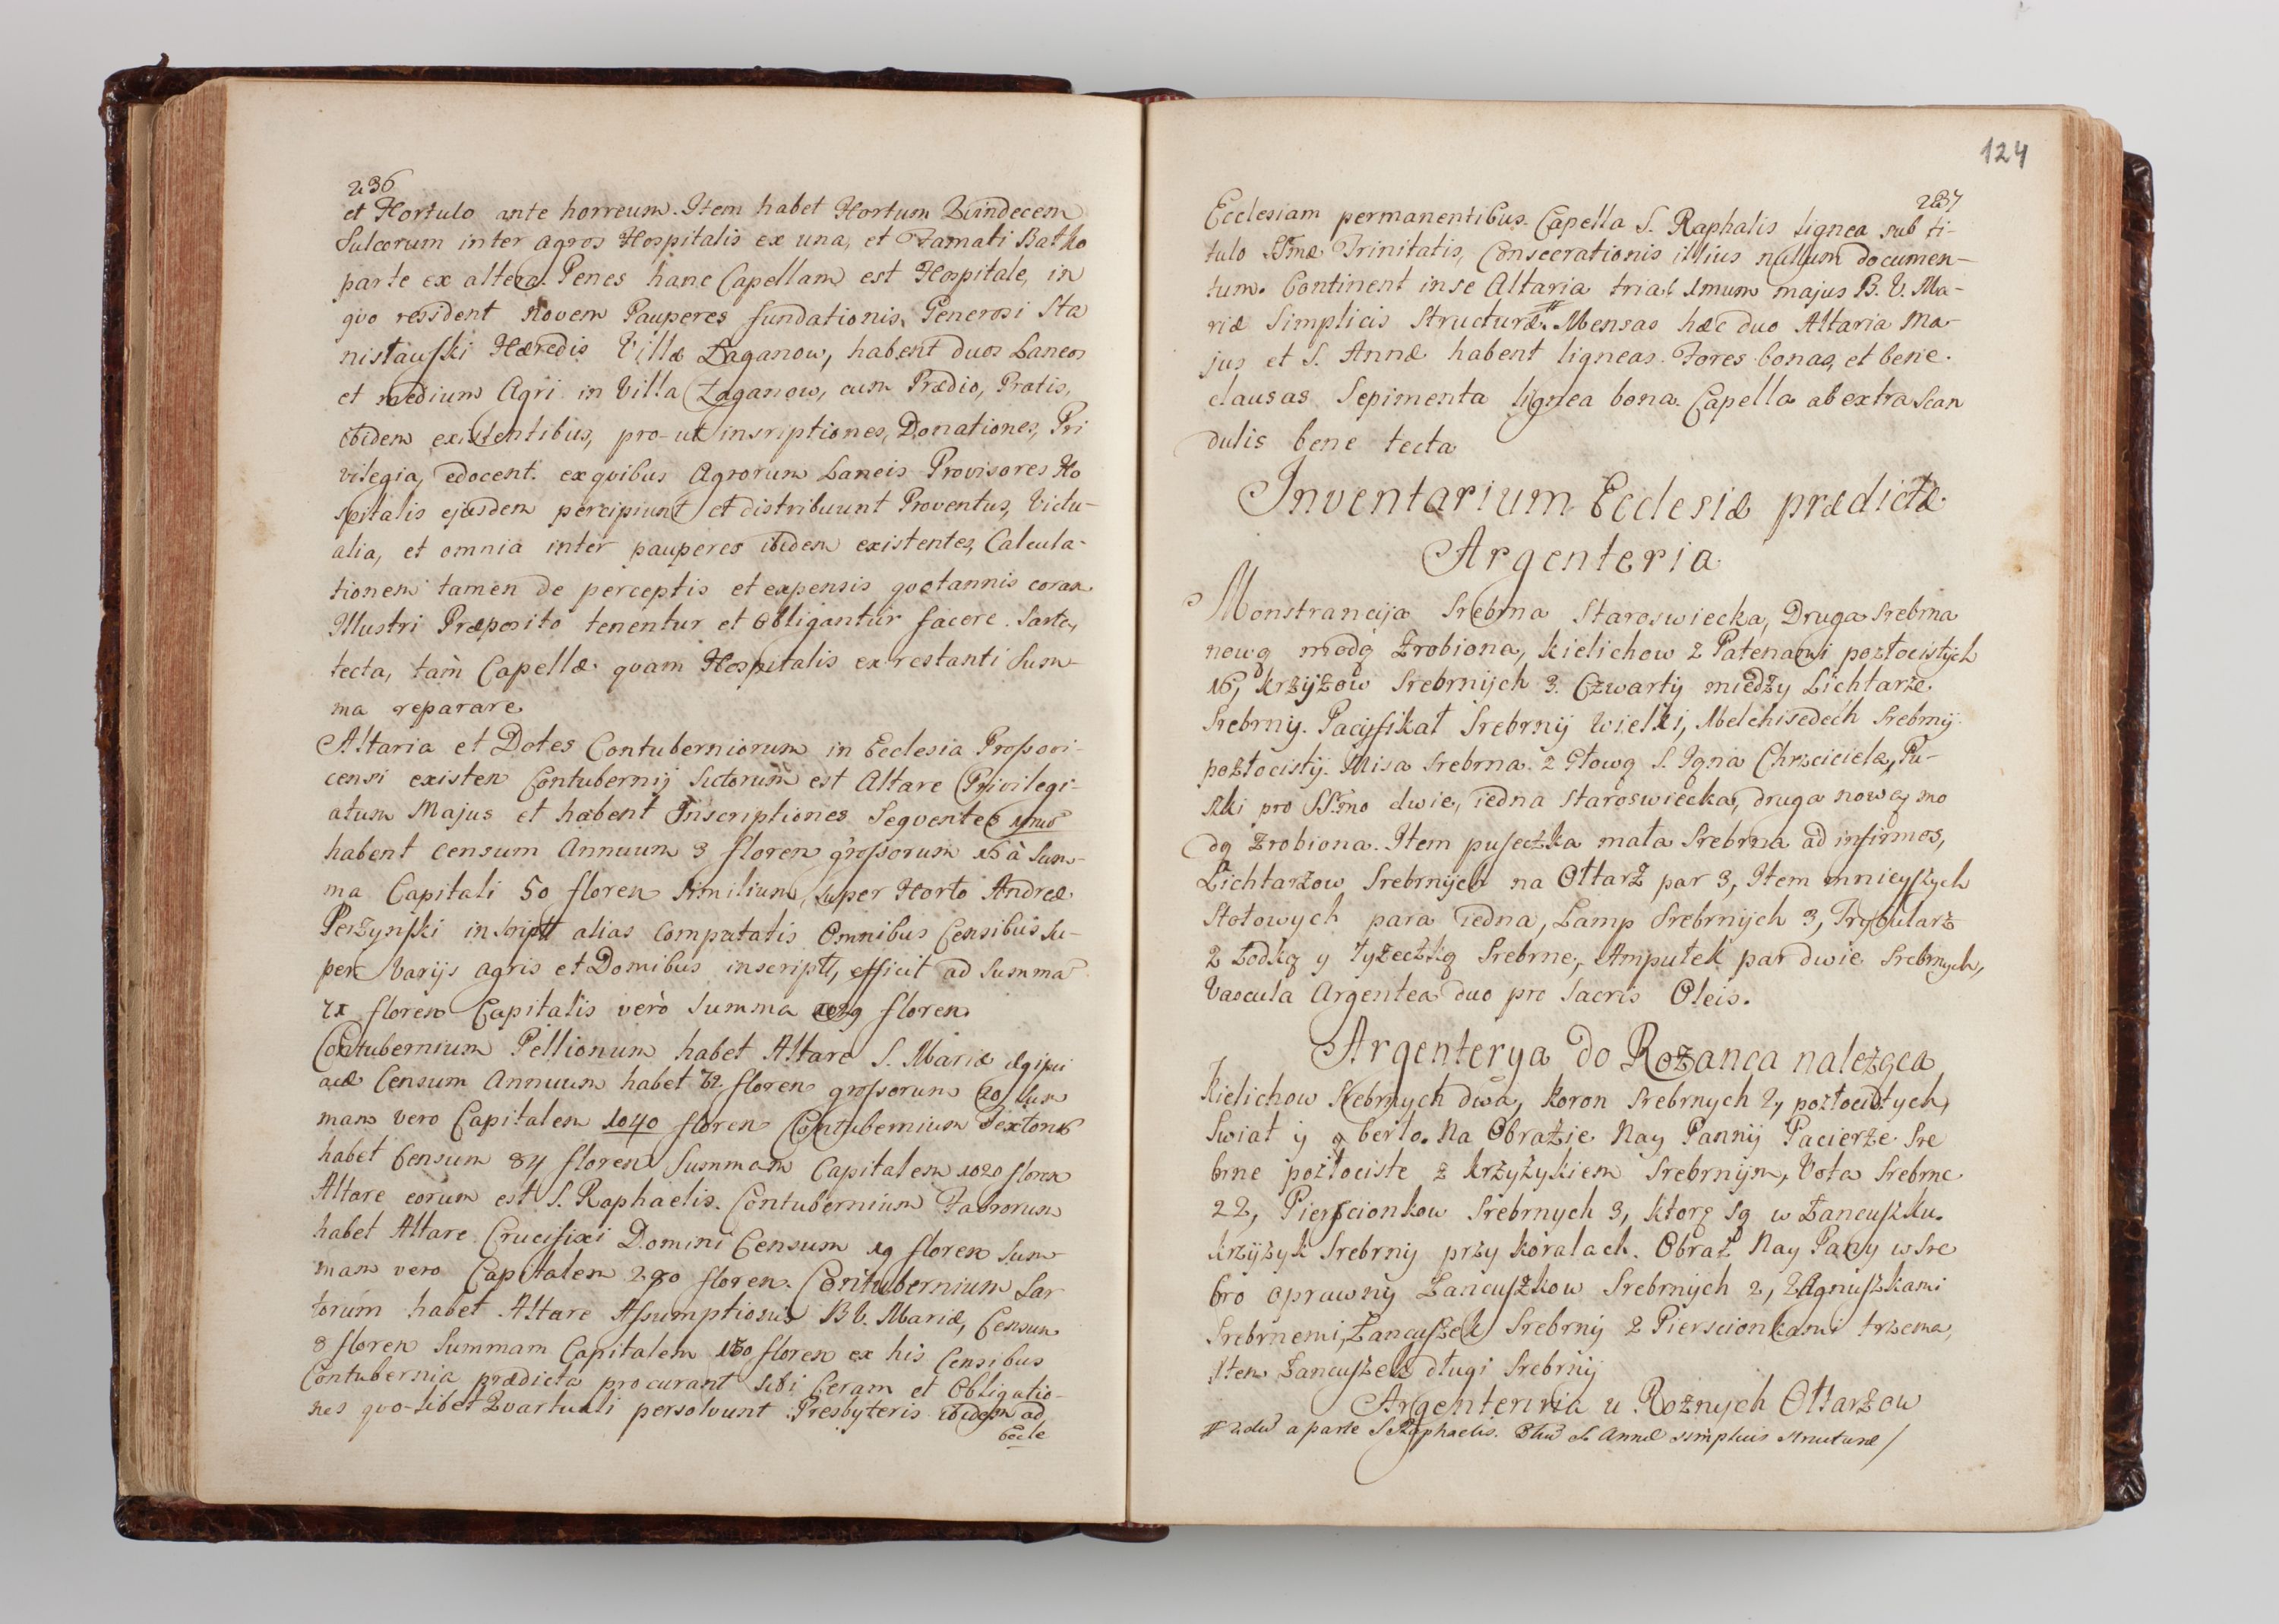 236
et Hortulo ante horreum. Item habet Hortum Quindecem
Sulcorum inter agros Hospitalis ex una, et Famati Batko
parte ex altera. Penes hanc Capellam est Hospitale, in
qvo resident Novem Pauperes fundationis, Generosi Sta
nisłauski Hæredis Villæ Łaganow, habent duos Laneos
et medium Agri in Villa Łaganow, cum Prædio, Pratis,
ibidem existentibus, pro-ut insriptiones, Donationes, Pri
vilegia, edocent. ex qvibus Agrorum Laneis Provisores Ho
spitalis ejusdem percipiunt et distribuunt Proventus, Victu-
alia, et omnia inter pauperes ibidem existentes, Calcula-
tionem tamen de perceptis et expensis qvotannis coram
Illustri Præposito tenentur et Obligantur facere. Sarta,
tecta, tam Capellæ qvam Hospitalis ex restanti Sum-
ma reparare.
Altaria et Dotes Contuberniorum in Ecclesia Prossovi-
censi existen Contubernij Sutorum est Altare Privilegi-
atum Majus et habent Inscriptiones Seqventes
habent censum Annuum 3 floren grossorum 16 à Sum-
ma Capitali 50 floren similium, super Horto Andreæ
Perzynski inscript alias Computatis Omnibus Censibus Su-
per Varijs agris et Domibus inscript, efficit ad Summa
71 floren Capitalis verò Summa 1029 floren
Contubernium Pellionum habet Altare S. Mariæ ægipti
acæ Censum Annuum habet 72 floren grossorum 20 Sum
mam vero Capitalem 1040 floren Contubernium Textorum
habet Censum 84 floren Summam Capitalem 1020 floren
Altare eorum est S. Raphaelis. Contubernium Fabrorum
habet Altare Crucifixi Domini Censum 19 floren Sum
mam vero Capitalem 280 floren. Contubernium Sar
torum habet Altare Assumptionis B V. Mariæ, Censum
8 floren Summam Capitalem 130 floren ex his Censibus
Contubernia prædicta procurant sibi Ceram et Obligatio-
nes qvo-libet Qvartuali persolvunt Presbyteris ibidem ad
Eccle
124
237
Ecclesiam permanentibus. Capella S. Raphalis lignea sub ti-
tulo SSmæ Trinitatis, Consecrationis illius nullum documen-
tum. Continent in se Altaria tria. 1mum majus B. V. Ma-
riæ Simplicis Structuræ. # Mensas hæc duo Altaria Ma-
jus et S. Annæ habent ligneas. Fores bonas, et bene
clausas. Sepimenta lignea bona. Capella ab extra Scan
dulis bene tecta
Inventarium Ecclesiæ prædictæ
Argenteria
Monstrancija Srebrna Staroswiecka, Druga srebrna
nową modą Zrobiona, kielichow z Patenami pozłocistych
16, krzyżow Srebrnijch 3. Czwarty miedzy Lichtarze
Srebrny. Pacyfikał Srebrnij Wielki, Melchisedech Srebrnij
pozłocistij. Misa Srebrna. z Głową S. Igna Chrzciciela, Pu-
szki pro SSmo dwie, iedna staroswiecka, druga nową mo
dą Zrobiona. Item puseczka mała Srebrna ad infirmos,
Lichtarzow Srebrnijch na Ołtarz par 3, Item mnieyszych
Stołowych para iedna, Lamp Srebrnijch 3, Trybularz
z Łodką y łyżeczką Srebrne, Ampułek par dwie Srebrnych,
Vascula Argentea duo pro Sacris Oleis.
Argenterya do Rożanca należąca
Kielichow Srebrnych dwa, Koron Srebrnych 2, pozłocistych,
Swiat y berło. Na Obrazie Nay Pannij Pacierze Sre
brne pozłociste z krzyżykiem Srebrnijm, Vota Srebrne
22, Pierscionkow Srebrnych 3, które są w Łancuszku.
krzijżyk Srebrnij przy koralach. Obraz Nay Pany w Sre
bro oprawny Łancuszkow Srebrnych 2, z Agnuszkami
Srebrnemi, Łancuszek Srebrnij z Pierscionkami trzema,
Item Łancuszek długi Srebrnij
Argenterya u Rożnych Ołtarzow
# 2dum a parte S Raphaelis. 3tium S. Annæ simplicis structuræ /